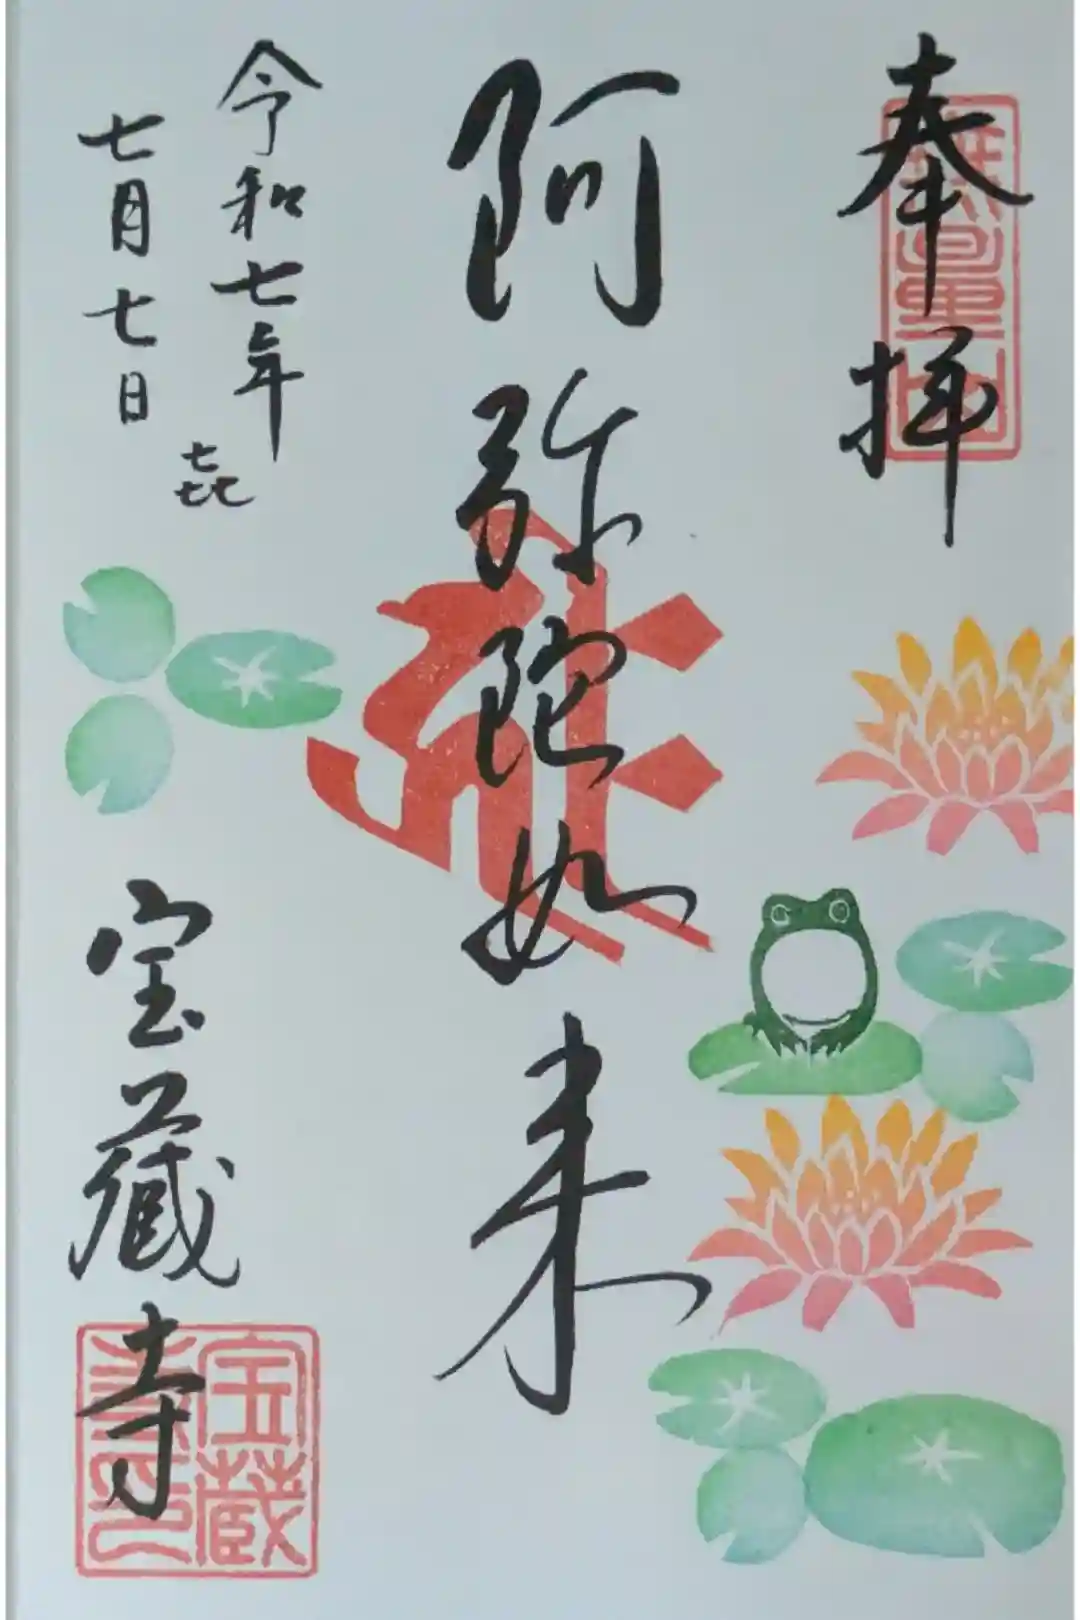 奉拝
無量山
阿弥陀如来
令和七年
七月七日
㐂
宝蔵寺
宝蔵寺印